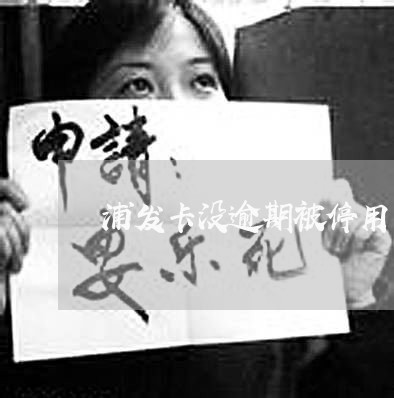 申請：
浦发卡没逾期被停用
安乐死